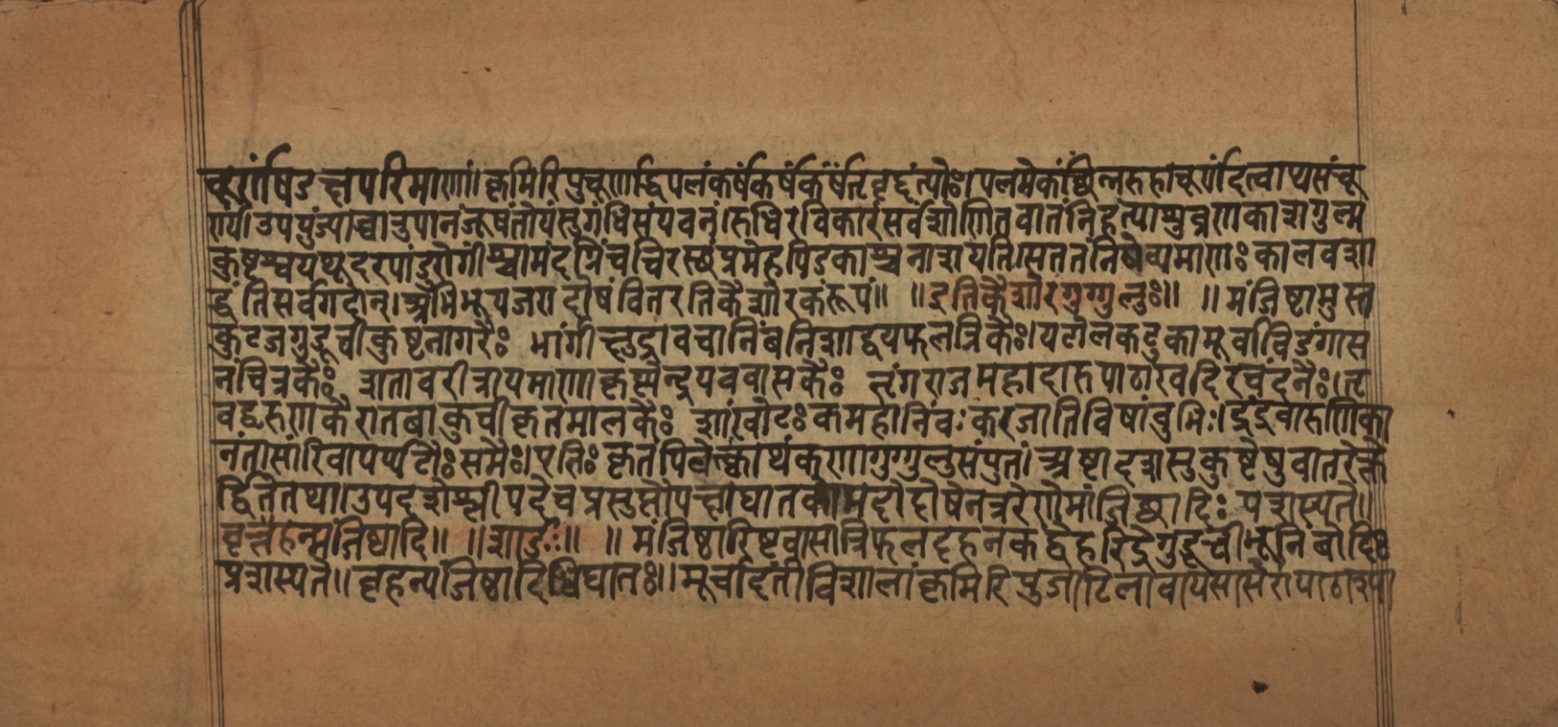 चूर्णंषिडच्छपरिमाणां॥कृमिरिपुचूर्णार्द्धिपलंकर्षंकर्षंकर्षंतृवृद्दंत्योः।पलमेकंछिन्नरुहाचूर्णंदित्वाप्यसंचू
र्णयो।उपभुंज्याच्चानुपानंजूषंतोयंसुगंधिसंपवनं।रुधिरविकारंसर्वंशोणितवातंनिहंत्याशुव्रणकाशगुल्म
कुष्टश्वयथूदरपांडुरोगांश्चामंदाग्निंचचिरस्छंप्रमेहपिडकाश्चनाशयति।सततंनिषेव्यमाणःकालवशा
द्धंतिसर्वगदान्।अभिभूयजरादोषंवितरतिकैशोरकंरूपं॥ ॥इतिकैशोरगुग्गुलुः॥ ॥मंजिष्टामुस्त
कुटजगुडूचीकुष्टनागरैः भांर्गीच्छुद्रावचानिंबनिशाद्वयफलत्रिकैः।पटोलकटुकामूर्वाविडंगास
नचित्रकैः शतावरीत्रायमाणाकृष्णेन्द्रयववासकैः भृंगराजमहादारुपाठाखदिरचंदनैः।तृ
वद्वरुणकैरातबाकुचीकृतमालकैः शाखोटःकमहानिंवःकरंजातिविषांवुभिः।इंदुवारुणिका
नंतासारिवापर्पटैःसमैः।एतिःकृतंपिबेत्क्वाथंकणागुग्गुलुसंयुतं।अष्टादशसुकुष्टेषुवातरक्ते
र्द्दितेतथा।उपदंशेश्लीपदेचप्रसुप्तौपच्छाघातके।मेदोदोषेनेत्ररोगेमांजिष्ठादिःप्रशस्यते॥
वृन्नेहन्मंजिष्ठादि॥ ॥शार्ङः॥ ॥मंजिष्ठारिष्टवासात्रिफलदहनकंद्वेहरिद्रेगुडूचीभूनिंबोदिः
प्रशस्यते॥वृहन्मंजिष्ठादिश्चिघातः॥।मूर्वादंतीविशालांकृमिरिपुजटिलावायसासेरापाठा